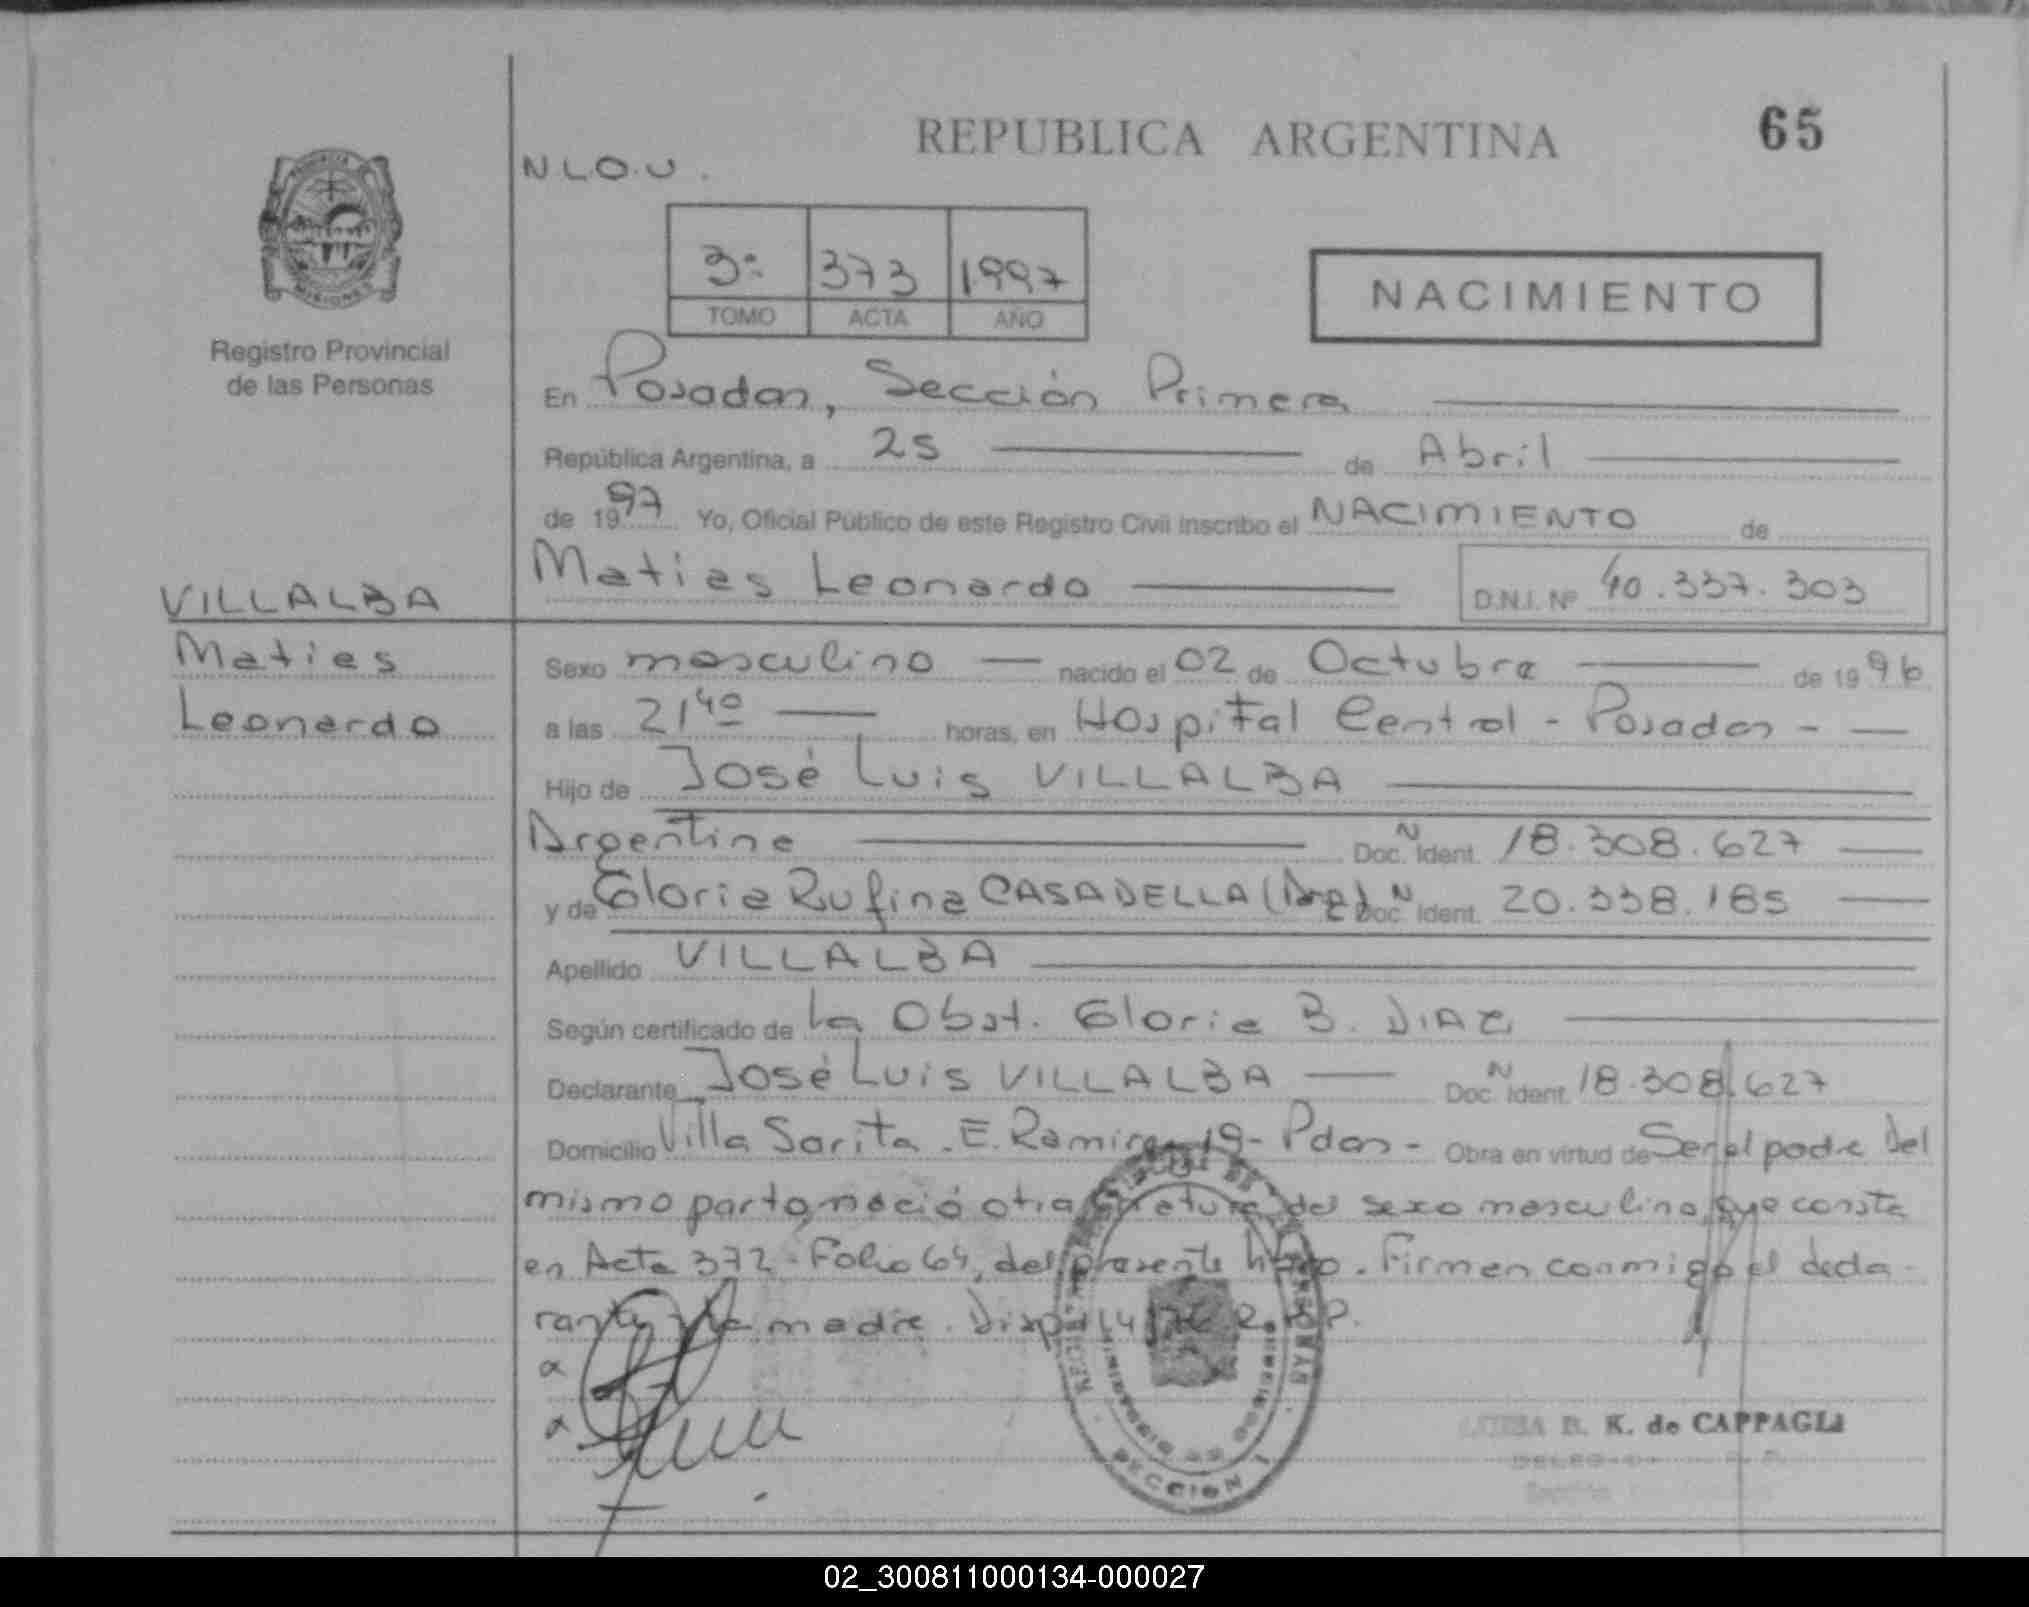 REPUBLICA ARGENTINA
65
N.L.O.U.
3º 373 1997
TOMO ACTA AÑO
NACIMIENTO
PROVINCIA
MISIONES
Registro Provincial
de las Personas
En Posadas, Sección Primera
República Argentina, a 25 de Abril
de 1997 Yo, Oficial Público de este Registro Civil inscribo el NACIMIENTO de
Matias Leonardo D.N.I. Nº 40.337.303
VILLALBA
Matias
Leonardo
Sexo masculino nacido el 02 de Octubre de 1996
a las 21⁴⁰ horas, en Hospital Central - Posadas -
Hijo de José Luis VILLALBA
Argentino Doc. N Ident. 18.308.627
y de Gloria Rufina CASADELLA (Arg) Doc. N Ident. 20.338.185
Apellido VILLALBA
Según certificado de la Obst. Gloria B. DIAZ
Declarante José Luis VILLALBA Doc. N Ident. 18.308.627
Domicilio Villa Sarita - E. Ramirez 19 - Pdas - Obra en virtud de Ser el padre Del
mismo parto, nació otra criatura del sexo masculino, que consta
en Acta 372 - Folio 64, del presente libro. Firman conmigo el decla-
rante y la madre. Disp.
SECCION 1
B. K. de CAPPAGLI
02_300811000134-000027